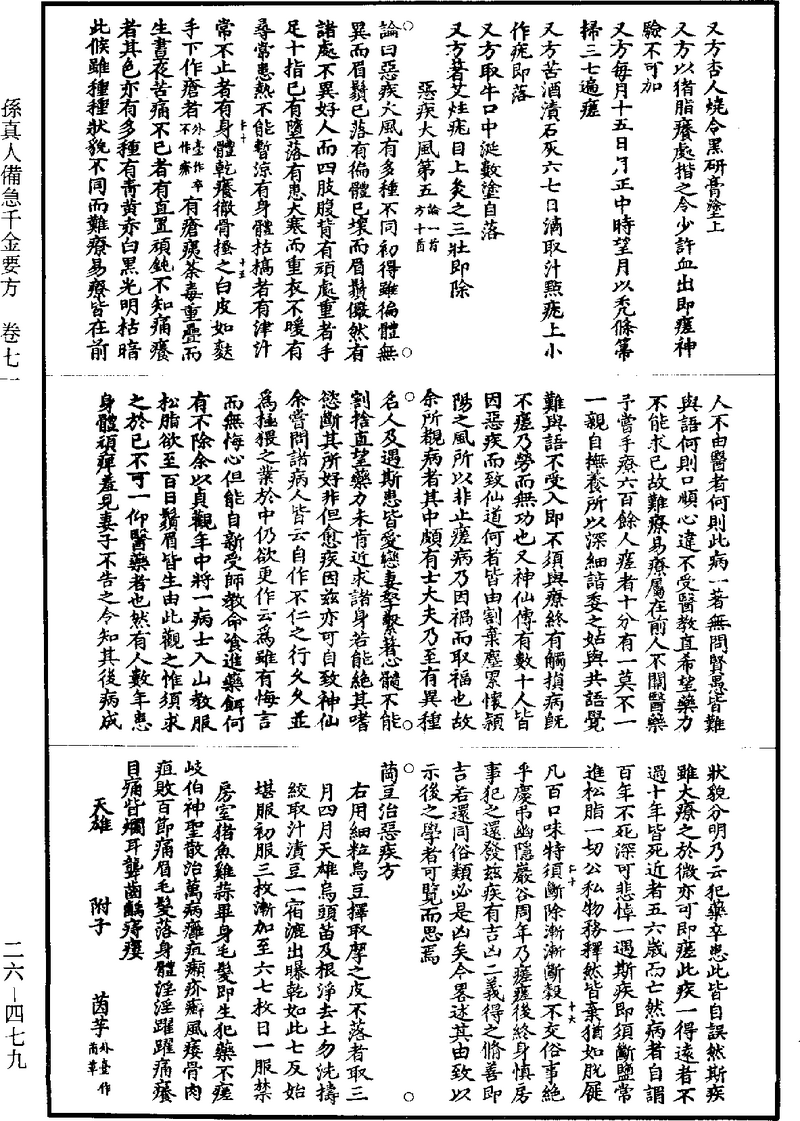 又方杏人燒令黑研膏塗上
又方以猪脂癢處揩之令少許血出即瘥神
驗不可加
又方每月十五日月正中時望月以禿條箒
掃三七遍瘥
又方苦酒漬石灰六七日滴取汁點疣上小
作疣即落
又方取牛口中涎數塗自落
又方著艾炷疣目上灸之三壯即除
惡疾大風第五 論一首 方十首
論曰惡疾大風有多種不同初得雖徧體無
異而眉鬚已落有徧體已壞而眉鬚儼然有
諸處不異好人而四肢腹背有頑處重者手
足十指已有墮落有患大寒而重衣不暖有
尋常患熱不能暫涼有身體枯槁者有津汁
常不止者有身體乾癢徹骨搔之白皮如麩
手下作瘡者 外臺作卒不作瘡 有瘡痍荼毒重疊而
生晝夜苦痛不已者有直置頑鈍不知痛癢
者其色亦有多種有青黃赤白黑光明枯暗
此候雖種種狀貌不同而難療易療皆在前
人不由醫者何則此病一著無問賢愚皆難
與語何則口順心違不受醫教直希望藥力
不能求己故難療易療屬在前人不關醫藥
予嘗手療六百餘人瘥者十分有一莫不一
一親自撫養所以深細諳委之姑與共語覺
難與語不受入即不須與療終有觸損病既
不瘥乃勞而無功也又神仙傳有數十人皆
因惡疾而致仙道何者皆由割棄塵累懷潁
陽之風所以非止瘥病乃因禍而取福也故
余所覩病者其中頗有士大夫乃至有異種
名人及遇斯患皆愛戀妻孥繫著心髓不能
割捨直望藥力未肯近求諸身若能絕其嗜
慾斷其所好非但愈疾因茲亦可自致神仙
余嘗問諸病人皆云自作不仁之行久久並
爲極猥之業於中仍欲更作云爲雖有悔言
而無悔心但能自新受師教命飡進藥餌何
有不除余以貞觀年中將一病士入山教服
松脂欲至百日鬚眉皆生由此觀之惟須求
之於己不可一仰醫藥者也然有人數年患
身體頑痺羞見妻子不告之令知其後病成
狀貌分明乃云犯藥卒患此皆自誤然斯疾
雖大療之於微亦可即瘥此疾一得遠者不
過十年皆死近者五六歲而亡然病者自謂
百年不死深可悲悼一遇斯疾即須斷鹽常
進松脂一切公私物務釋然皆棄猶如脫屣
凡百口味特須斷除漸漸斷穀不交俗事絕
乎慶弔幽隱嚴谷周年乃瘥瘥後終身慎房
事犯之還發茲疾有吉凶二義得之脩善即
吉若還同俗類必是凶矣今畧述其由致以
示後之學者可覽而思焉
䕡豆治惡疾方
右用細粒烏豆擇取摩之皮不落者取三
月四月天雄烏頭苗及根淨去土勿洗擣
絞取汁漬豆一宿漉出曝乾如此七反始
堪服初服三枚漸加至六七枚日一服禁
房室猪魚雞蒜畢身毛髮即生犯藥不瘥
岐伯神聖散治萬病癰疽癩疥癬風痿骨肉
疽敗百節痛眉毛髮落身體淫淫躍躍痛癢
目痛眥爛耳聾齒齲痔瘻
天雄 附子 茵芋 外臺作𦯶草
孫真人備急千金要方 卷七一
二六—四七九